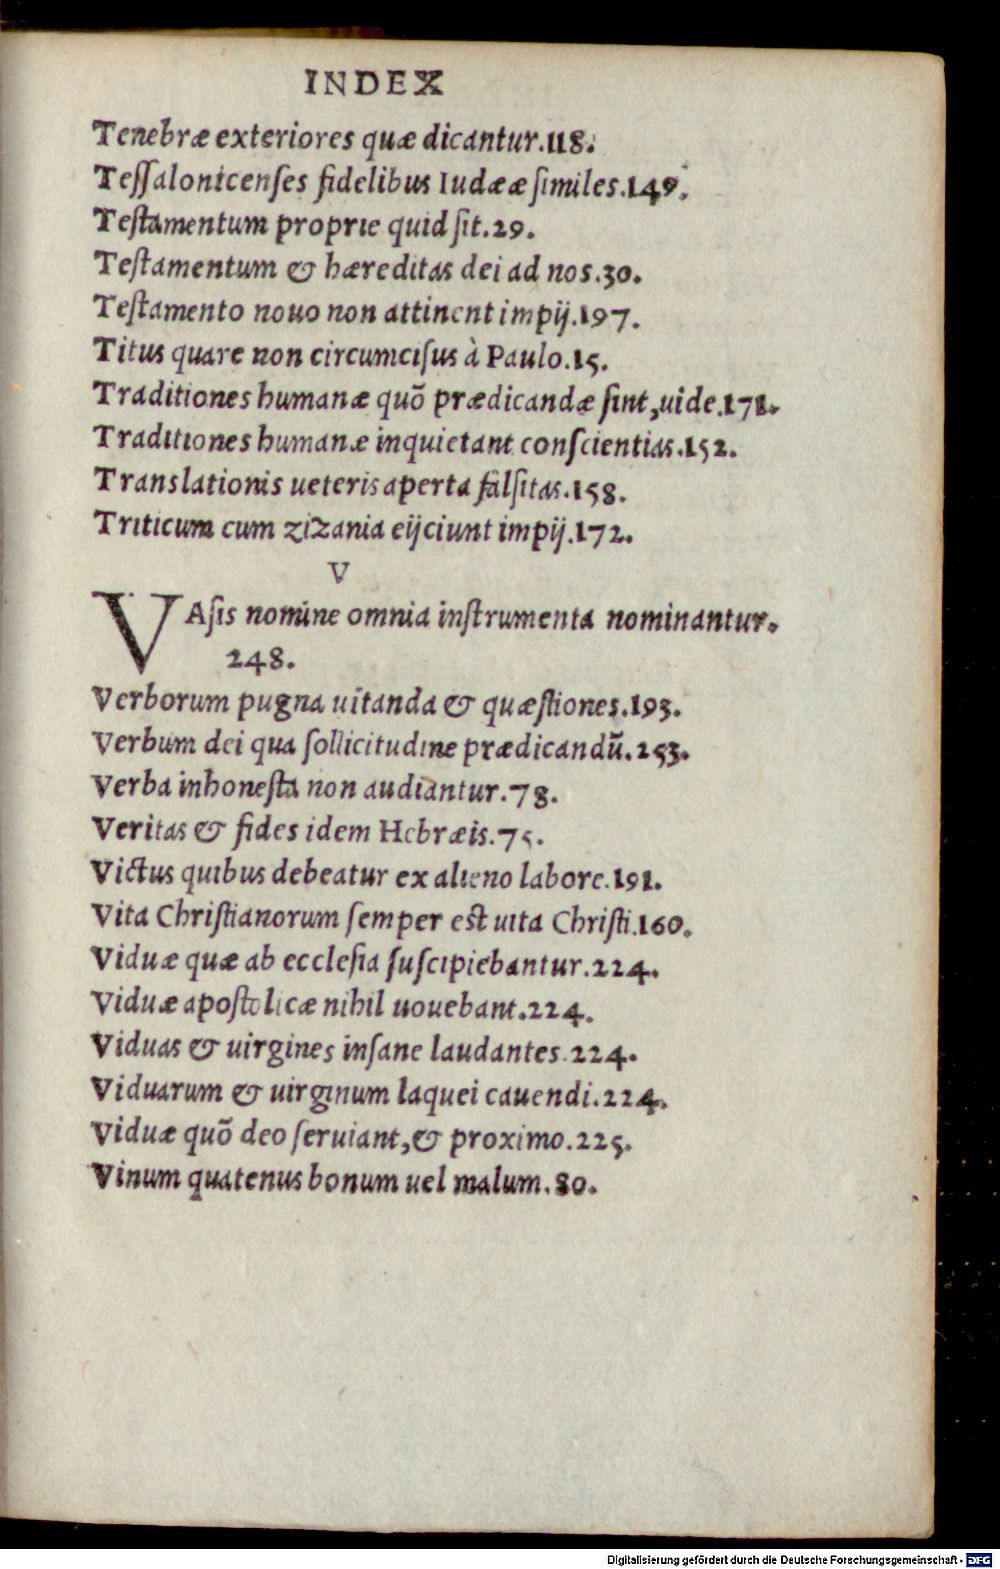 INDEX
Tenebræ exteriores quæ dicantur.118.
Teſſalonicenſes fidelibus Iudææ ſimiles.149.
Teſtamentum proprie quid ſit.29.
Teſtamentum & hæreditas dei ad nos.30.
Teſtamento nouo non attinent impij.197.
Titus quare non circumciſus à Paulo.15.
Traditiones humanæ quõ prædicandæ ſint,uide.171.
Traditiones humanæ inquietant conſcientias.152.
Translationis ueteris aperta falſitas.158.
Triticum cum zizania eijciunt impij.172.
V
VAſis nomine omnia inſtrumenta nominantur.
248.
Verborum pugna uitanda & quæſtiones.193.
Verbum dei qua ſollicitudine prædicandũ.253.
Verba inhoneſta non audiantur.78.
Veritas & fides idem Hebræis.75.
Victus quibus debeatur ex alieno labore.191.
Vita Chriſtianorum ſemper eſt uita Chriſti.160.
Viduæ quæ ab eccleſia ſuſcipiebantur.224.
Viduæ apoſtolicæ nihil uouebant.224.
Viduas & uirgines inſane laudantes.224.
Viduarum & uirginum laquei cauendi.224.
Viduæ quõ deo ſeruiant,& proximo.225.
Vinum quatenus bonum uel malum.80.
Digitalisierung gefördert durch die Deutsche Forschungsgemeinschaft - DFG